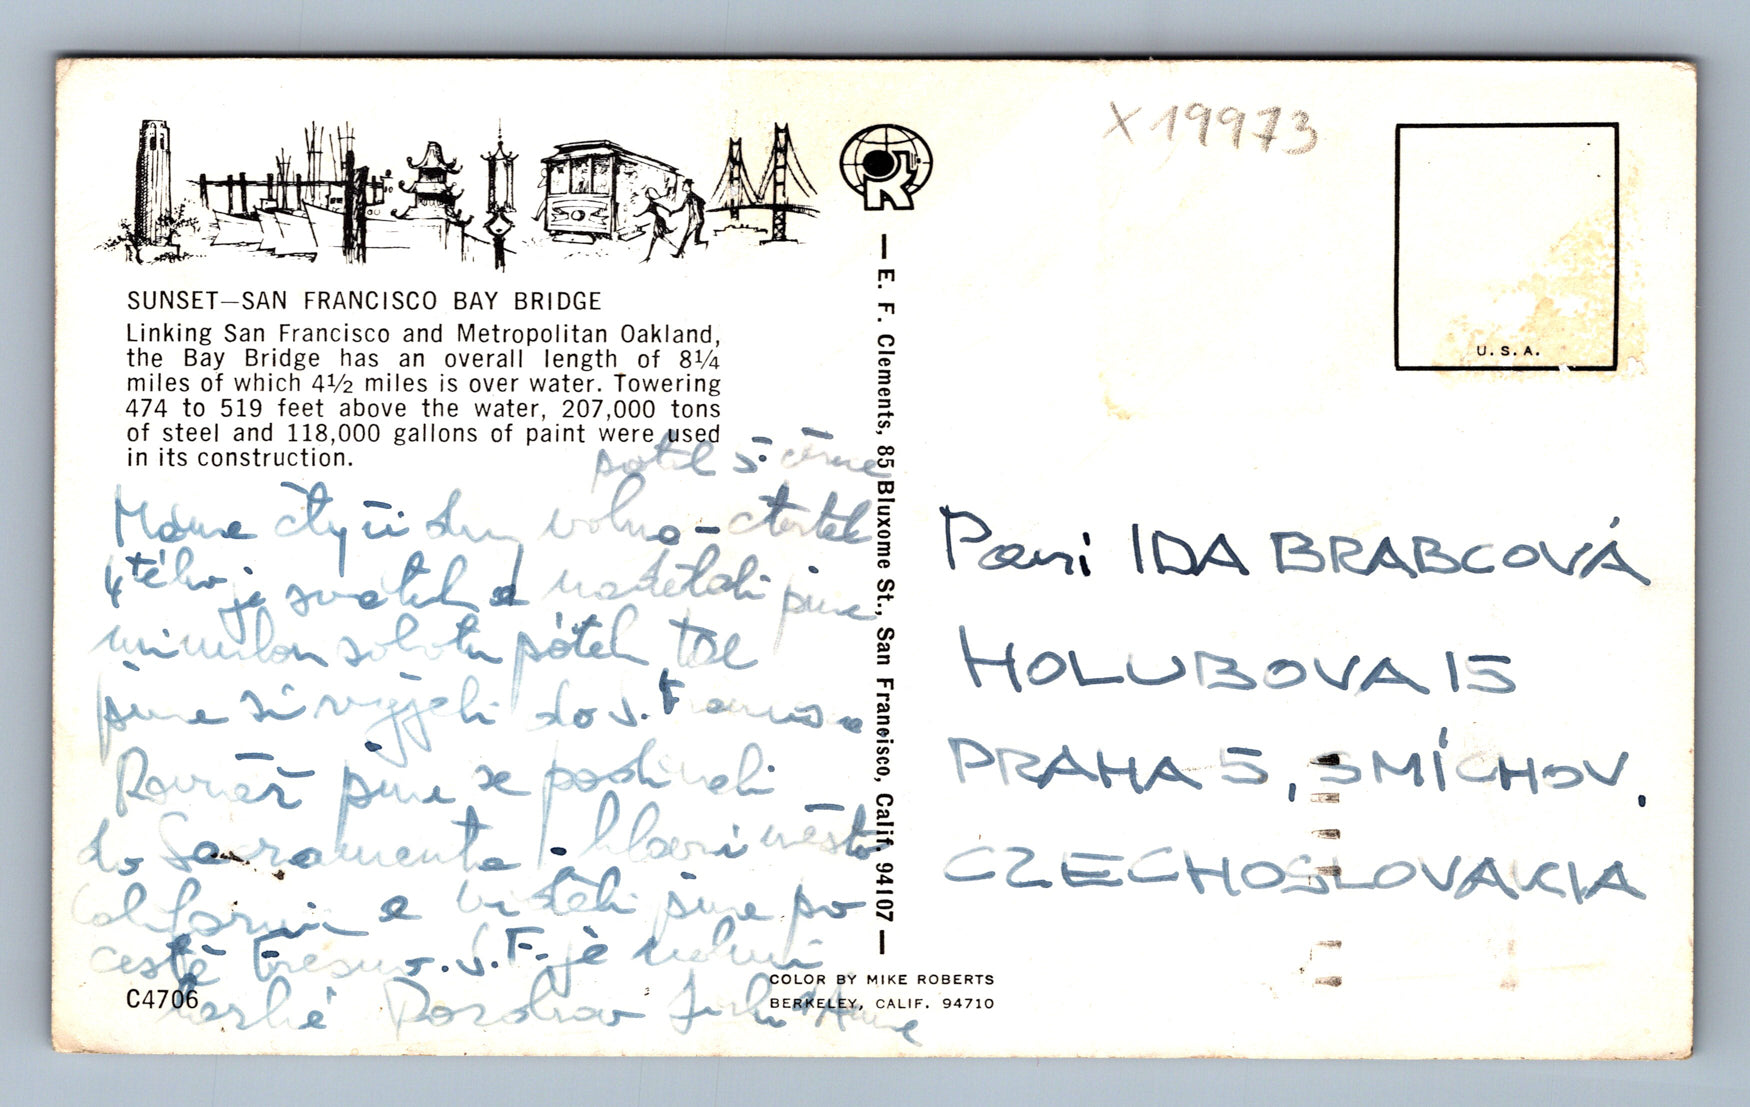 SUNSET—SAN FRANCISCO BAY BRIDGE
Linking San Francisco and Metropolitan Oakland,
the Bay Bridge has an overall length of 8¼
miles of which 4½ miles is over water. Towering
474 to 519 feet above the water, 207,000 tons
of steel and 118,000 gallons of paint were used
in its construction.
pátek 5. června
Máme čtyři dny volno - čtvrtek
4tého je svátek a
minulou sobotu pátek, tak
jsme si vyjeli do S. Francisca
Rovněž jsme se podívali
do Sacramenta - hlavní město
Californie a viděli jsme po
cestě Fresno. S.F. je velmi
hezké Pozdrav
C4706
— E. F. Clements, 85 Bluxome St., San Francisco, Calif. 94107 —
COLOR BY MIKE ROBERTS
BERKELEY, CALIF. 94710
X 19973
U.S.A.
Paní IDA BRABCOVÁ
HOLUBOVA 15
PRAHA 5, SMÍCHOV.
CZECHOSLOVAKIA